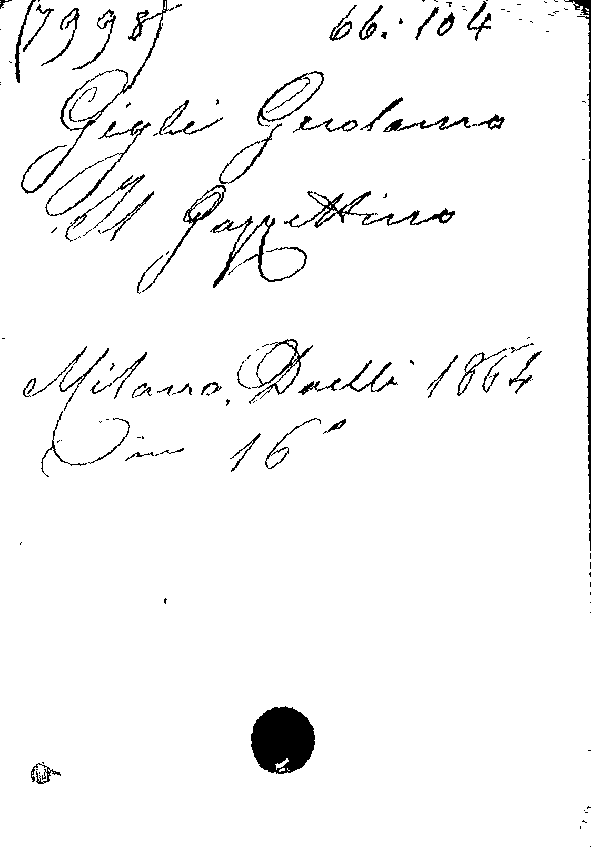 (7998) 66.104
Gigli Girolamo
Il Gazzettino
Milano, Daelli 1864
in 16°